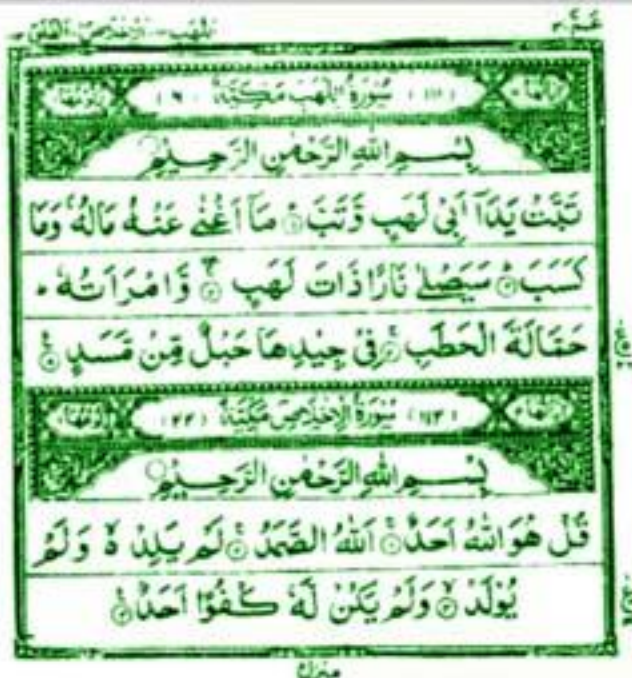 عَمَّ ٣٠ اللهب - الاخلاص - الفلق
(١١١) سُوْرَةُ اللَّهَبِ مَكِّيَّةٌ (٦)
بِسْمِ اللهِ الرَّحْمٰنِ الرَّحِيْمِ
تَبَّتْ يَدَآ اَبِيْ لَهَبٍ وَّتَبَّ ۝ مَآ اَغْنٰى عَنْهُ مَالُهٗ وَمَا
كَسَبَ ۝ سَيَصْلٰى نَارًا ذَاتَ لَهَبٍ ۝ وَّامْرَاَتُهٗ
حَمَّالَةَ الْحَطَبِ ۝ فِيْ جِيْدِهَا حَبْلٌ مِّنْ مَّسَدٍ ۝
سُوْرَةُ الْاِخْلَاصِ مَكِّيَّةٌ (٢٢)
بِسْمِ اللهِ الرَّحْمٰنِ الرَّحِيْمِ
قُلْ هُوَ اللهُ اَحَدٌ ۝ اَللهُ الصَّمَدُ ۝ لَمْ يَلِدْ ۙ وَلَمْ
يُوْلَدْ ۝ وَلَمْ يَكُنْ لَّهٗ كُفُوًا اَحَدٌ ۝
منزل